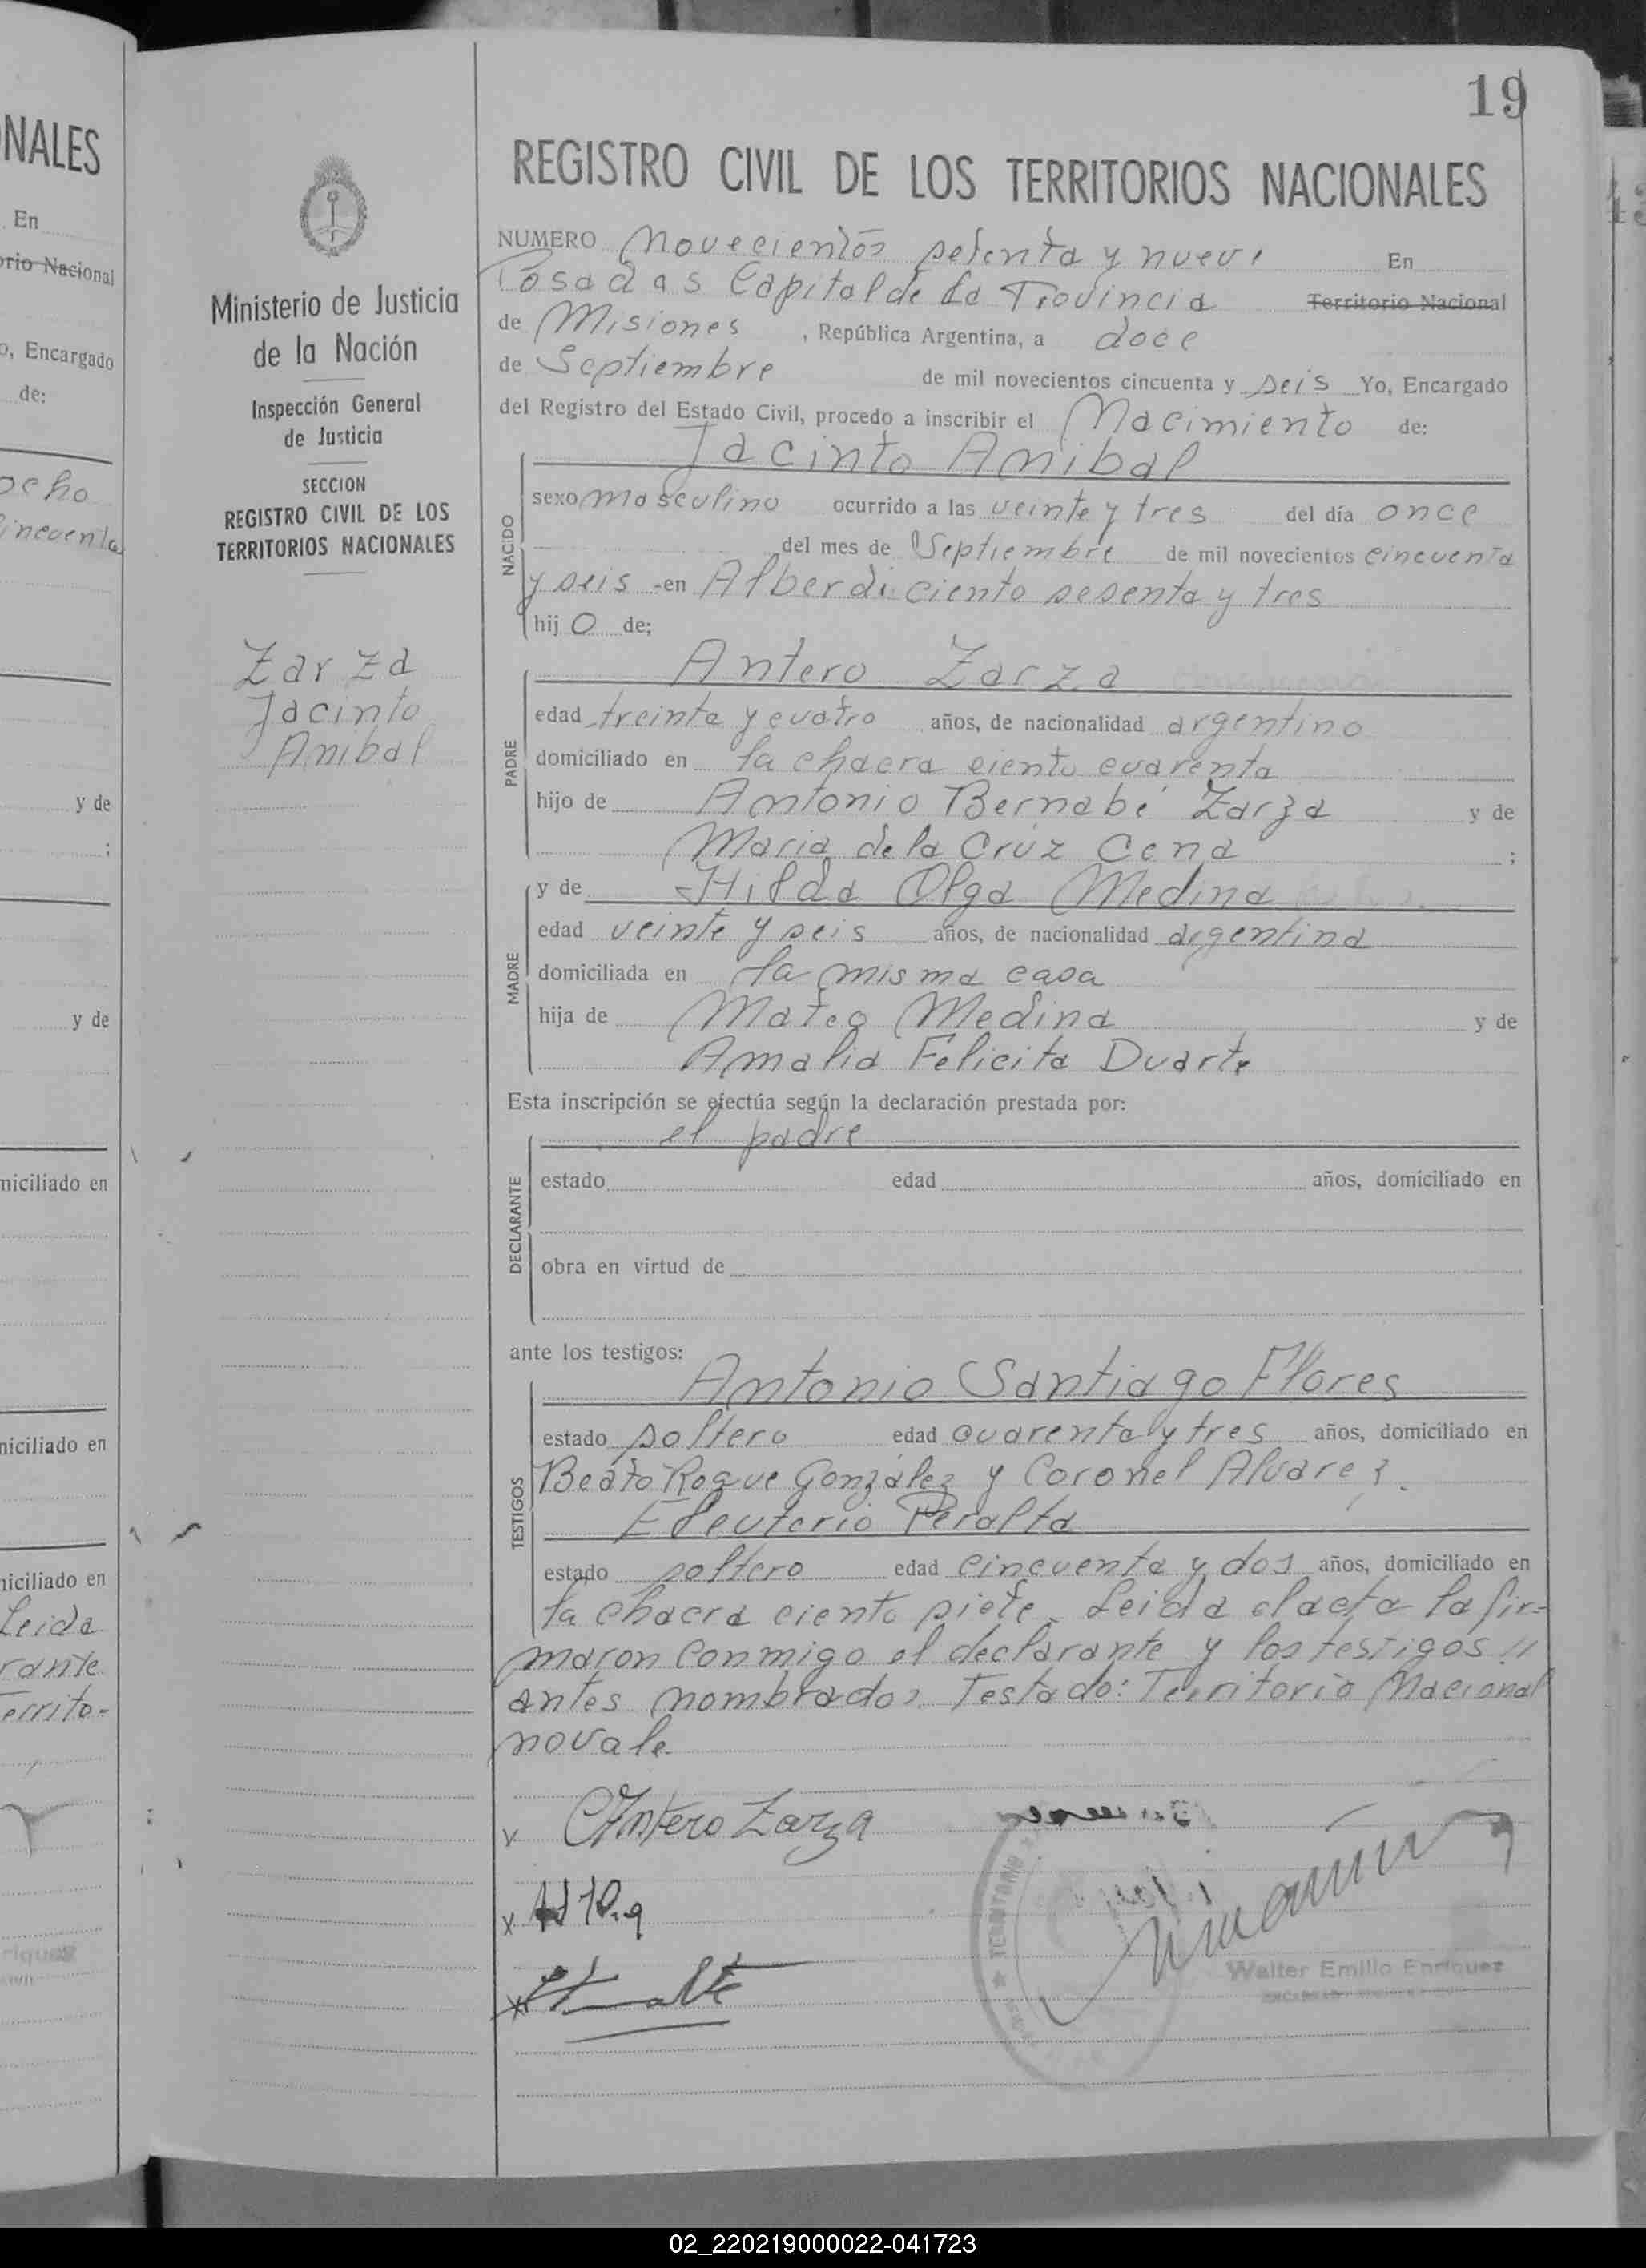 NALES
En
rio Nacional
o, Encargado
de:
ocho
cincuenta
y de
;
y de
miciliado en
niciliado en
niciliado en
Leida
rante
errito-
riquez
Ministerio de Justicia
de la Nación
Inspección General
de Justicia
SECCION
REGISTRO CIVIL DE LOS
TERRITORIOS NACIONALES
Zarza
Jacinto
Anibal
19
REGISTRO CIVIL DE LOS TERRITORIOS NACIONALES
NUMERO Novecientos setenta y nueve En
Posadas Capital de la Provincia Territorio Nacional
de Misiones , República Argentina, a doce
de Septiembre de mil novecientos cincuenta y seis Yo, Encargado
del Registro del Estado Civil, procedo a inscribir el Nacimiento de:
Jacinto Anibal
NACIDO
sexo masculino ocurrido a las veinte y tres del día once
del mes de Septiembre de mil novecientos cincuenta
y seis - en Alberdi ciento sesenta y tres
hij o de;
Antero Zarza
PADRE
edad treinta y cuatro años, de nacionalidad argentino
domiciliado en la chacra ciento cuarenta
hijo de Antonio Bernabé Zarza y de
Maria de la Cruz Cena ;
y de Hilda Olga Medina
MADRE
edad veinte y seis años, de nacionalidad argentina
domiciliada en la misma casa
hija de Mateo Medina y de
Amalia Felicita Duarte
Esta inscripción se efectúa según la declaración prestada por:
el padre
DECLARANTE
estado edad años, domiciliado en
obra en virtud de
ante los testigos:
Antonio Santiago Flores
TESTIGOS
estado soltero edad cuarenta y tres años, domiciliado en
Beato Roque González y Coronel Alvarez.
Eleuterio Peralta
estado soltero edad cincuenta y dos años, domiciliado en
la chacra ciento siete. Leida el acta la fir=
maron conmigo el declarante y los testigos
antes nombrados. Testado: Territorio Nacional
no vale.
Antero Zarza
TERRITORIO
Walter Emilio Enriquez
02_220219000022-041723